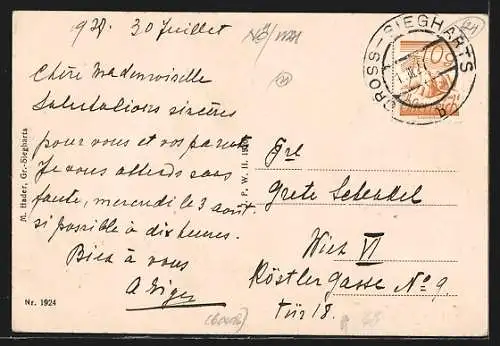 1927. 30 Juillet
Chère Mademoiselle
Salutations sincères
pour vous et vos parents
Je vous attends sans
faute, mercredi le 3 août
si possible à dix heures.
Bien à vous
NÖ/WV
GROSS-SIEGHARTS
10g
b
Frl
Grete
Wien VI
Köstlergasse No 9
Tür 18.
M. Hader, Gr.-Siegharts
P. W. II.
Nr. 1924